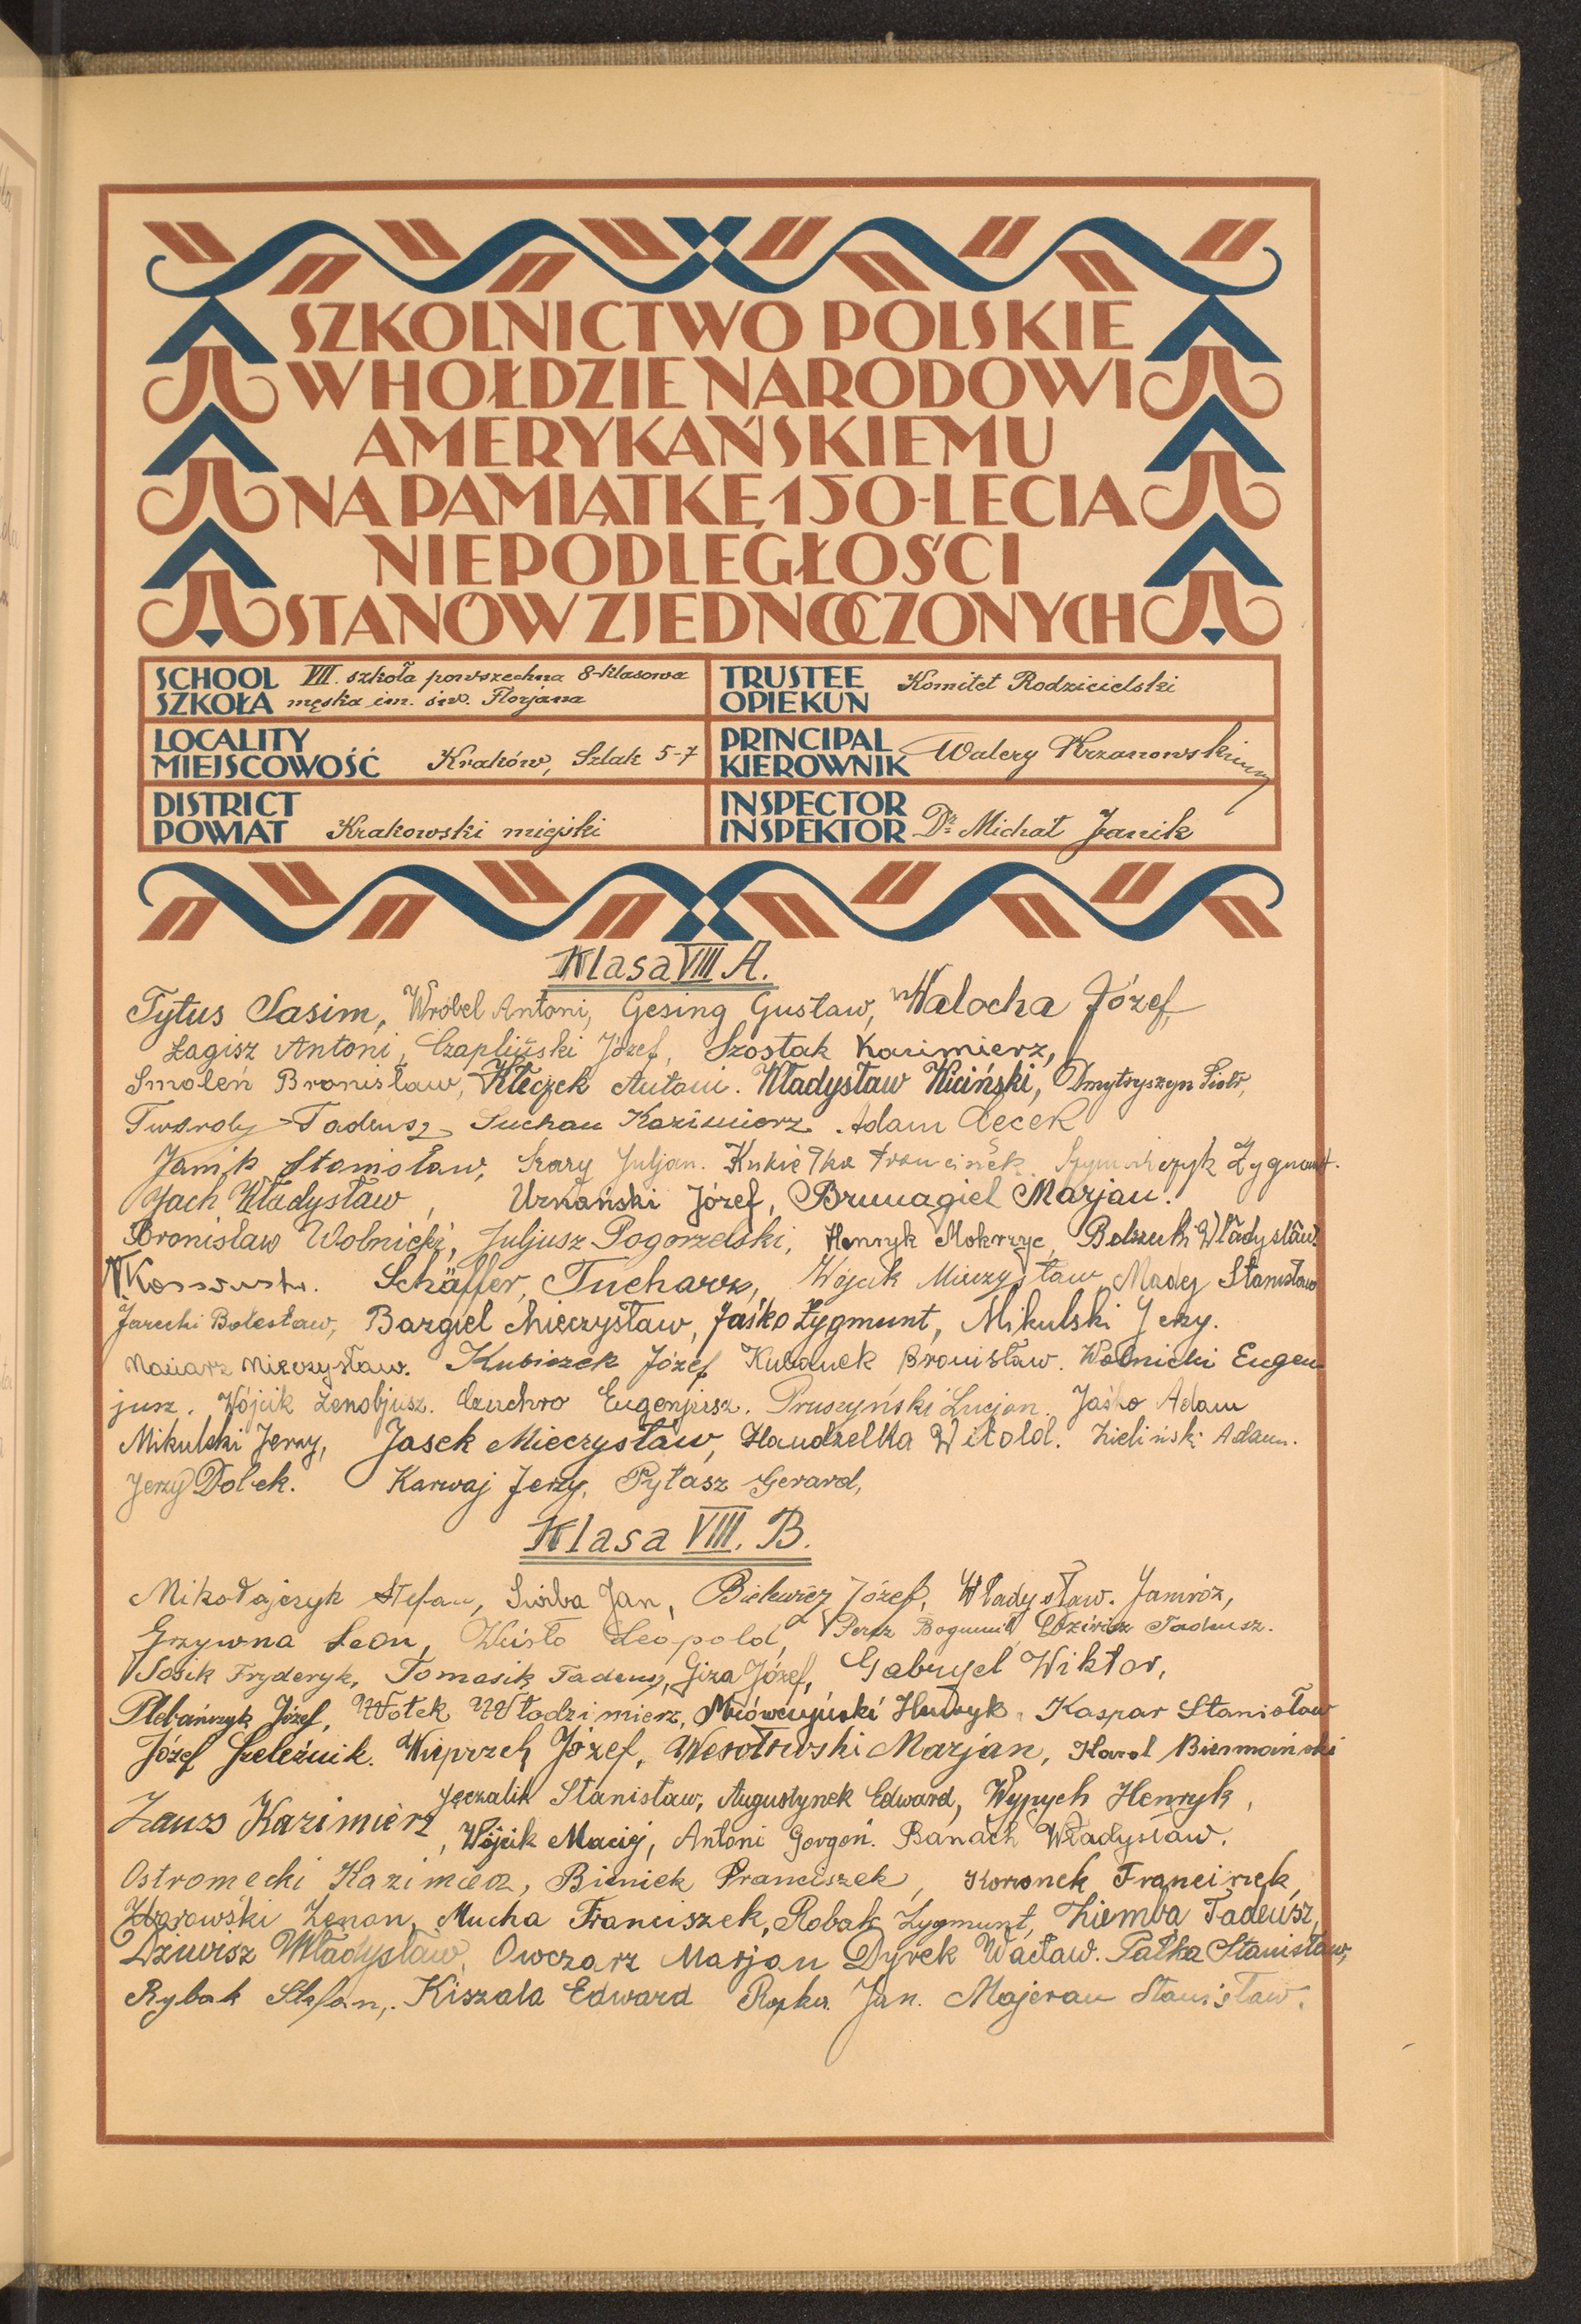 SZKOLNICTWO POLSKIE
W HOŁDZIE NARODOWI
AMERYKAŃSKIEMU
NA PAMIĄTKĘ 150-LECIA
NIEPODLEGŁOŚCI
STANÓW ZJEDNOCZONYCH
SCHOOL SZKOŁA VII. szkoła powszechna 8-klasowa
męska im. św. Florjana
TRUSTEE OPIEKUN Komitet Rodzicielski
LOCALITY MIEJSCOWOŚĆ Kraków, Szlak 5-7
PRINCIPAL KIEROWNIK Walery Krzanowski
DISTRICT POWIAT Krakowski miejski
INSPECTOR INSPEKTOR Dr. Michał Janik
Klasa VIII A.
Tytus Sasim, Wróbel Antoni, Gesing Gustaw, Walocha Józef,
Łagisz Antoni, Czapliński Józef, Szostak Kazimierz,
Smoleń Bronisław, Kłeczek Antoni. Władysław Kiciński, Dmytryszyn Piotr,
Twardy Tadeusz, Suchan Kazimierz. Adam Cecek
Janik Stanisław, Szary Juljan. Kukiełka Franciszek. Szymończyk Zygmunt.
Jach Władysław, Uznański Józef, Brunagiel Marjan.
Bronisław Wolnicki, Juljusz Pogorzelski, Henryk Mokrzyc, Władysław
Schäffer, Tucharz, Wójcik Mieczysław, Madej Stanisław
Jarecki Bolesław, Bargiel Mieczysław, Jaśko Zygmunt, Mikulski Jerzy.
Maciarz Mieczysław. Kubiczek Józef Kubanek Bronisław. Wolnicki Eugen
jusz. Wójcik Zenobjusz. Czuchro Eugenjusz. Pruszyński Lucjan. Jaśko Adam
Mikulski Jerzy, Jasek Mieczysław, Handzelka Witold. Zieliński Adam.
Jerzy Dobek. Karwaj Jerzy, Pytasz Gerard,
Klasa VIII. B.
Mikołajczyk Stefan, Jan, Bielewicz Józef, Władysław. Jamróz,
Grzywna Leon, Wcisło Leopold, Bogumił Tadeusz.
Sosik Fryderyk, Tomasik Tadeusz, Giza Józef, Gabryel Wiktor,
Plebańczyk Józef, Wołek Włodzimierz, Henryk. Kaspar Stanisław
Józef Szeleźnik. Wieprzek Józef, Wesołowski Marjan, Karol Biermański
Zauss Kazimierz Jęczalik Stanisław, Augustynek Edward, Wypych Henryk,
, Wójcik Maciej, Antoni Gorgoń. Banach Władysław.
Ostromecki Kazimierz, Bieniek Franciszek, Koronek Franciszek,
Zenon, Mucha Franciszek, Robak Zygmunt, Ziemba Tadeusz,
Dziwisz Władysław, Owczarz Marjan Dyrek Wacław. Pałka Stanisław,
Rybak Stefan, Kiszala Edward Jan. Majeran Stanisław.